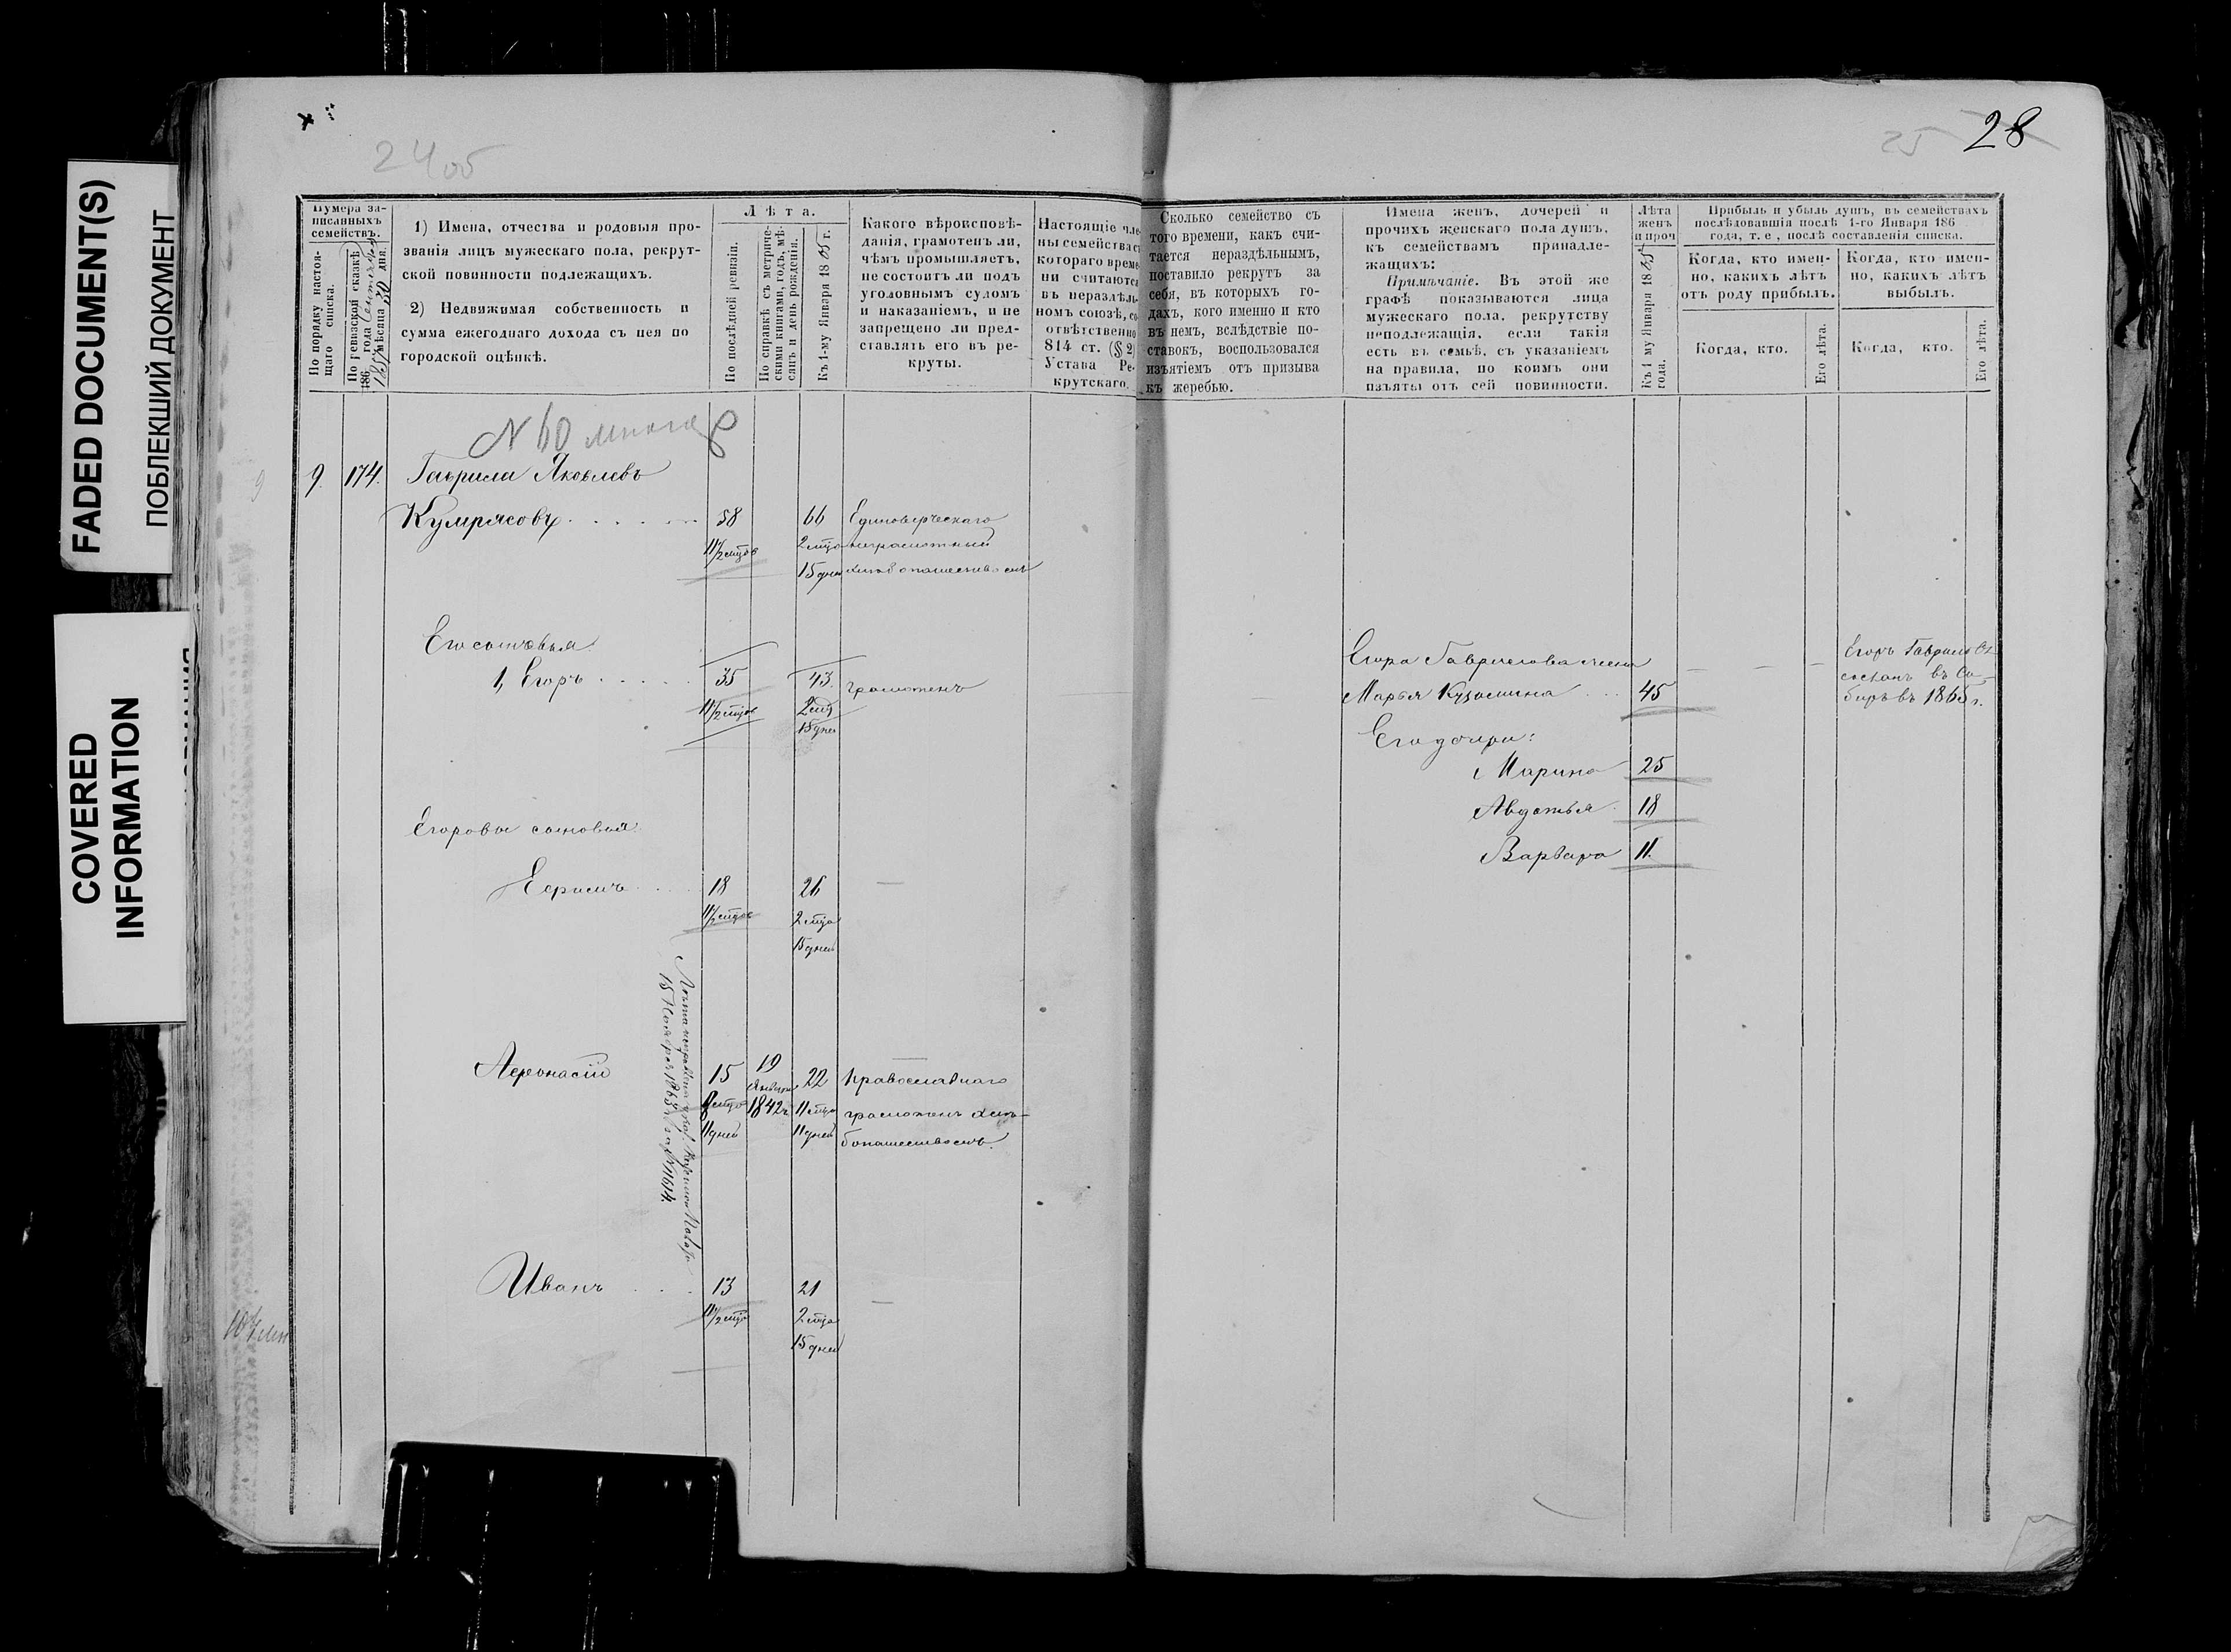 FADED DOCUMENT(S)
ПОБЛЕКШИЙ ДОКУМЕНТ
COVERED
INFORMATION
24 об
25
28
Нумера за-
писанныхъ
семействъ.
По порядку настоя-
щаго списка.
По ревизской сказкѣ
186 года
1857 мѣсяца 30 дня.
1) Имена, отчества и родовыя про-
званія лицъ мужескаго пола, рекрут-
ской повинности подлежащихъ.
2) Недвижимая собственность и
сумма ежегоднаго дохода съ нея по
городской оцѣнкѣ.
Лѣта.
По послѣдней ревизіи.
По справкѣ съ метриче-
скими книгами, годъ, мѣ-
сяцъ и день рожденія.
Къ 1-му Января 1865 г.
Какого вѣроисповѣ-
данія, грамотенъ ли,
чѣмъ промышляетъ,
не состоитъ ли подъ
уголовнымъ судомъ
и наказаніемъ, и не
запрещено ли пред-
ставлять его въ ре-
круты.
Настоящіе чле-
ны семейства съ
котораго време-
ни считаются
въ нераздѣль-
номъ союзѣ, со-
отвѣтственно
814 ст. (§ 2)
Устава Ре-
крутскаго.
Сколько семейство съ
того времени, какъ счи-
тается нераздѣльнымъ,
поставило рекрутъ за
себя, въ которыхъ го-
дахъ, кого именно и кто
въ немъ, вслѣдствіе по-
ставокъ, воспользовался
изъятіемъ отъ призыва
къ жеребью.
Имена женъ, дочерей и
прочихъ женскаго пола душъ,
къ семействамъ принадле-
жащихъ:
Примѣчаніе. Въ этой же
графѣ показываются лица
мужескаго пола, рекрутству
неподлежащія, если такія
есть въ семьѣ, съ указаніемъ
на правила, по коимъ они
изъяты отъ сей повинности.
Лѣта
женъ
и проч
Къ 1 му Января 1865
года.
Прибыль и убыль душъ, въ семействахъ
послѣдовавшія послѣ 1-го Января 186
года, т. е, послѣ составленія списка.
Когда, кто имен-
но, какихъ лѣтъ
отъ роду прибылъ.
Когда, кто имен-
но, какихъ лѣтъ
выбылъ.
Когда, кто.
Его лѣта.
Когда, кто.
Его лѣта.
N 60
9
9. 174. Гаврила Яковлевъ
Кумрясовъ 58 66 Единоверческаго
11 1/2 мцов 2 мца неграмотный
15 дней хлебопашествомъ
Его сыновья
1, Егоръ 35 43. грамотенъ
11 1/2 мцов 2 мца
15 дней
Егора Гаврилова жена
Марья Кузмина 45
Егоръ Гавриловъ
сосланъ въ Си-
бирь въ 1865 г.
Его дочери:
Марина 25
Авдотья 18
Варвара 11.
Егоровы сыновья:
Ефимъ 18 26
11 1/2 мцов 2 мца
15 дней
Афонасій 15 19 22 Православнаго
Января
мцов 1842 г. 11 мцов грамотенъ хле-
11 дней 11 дней бопашествомъ.
Иванъ 13 21
11 1/2 мцов 2 мца
15 дней